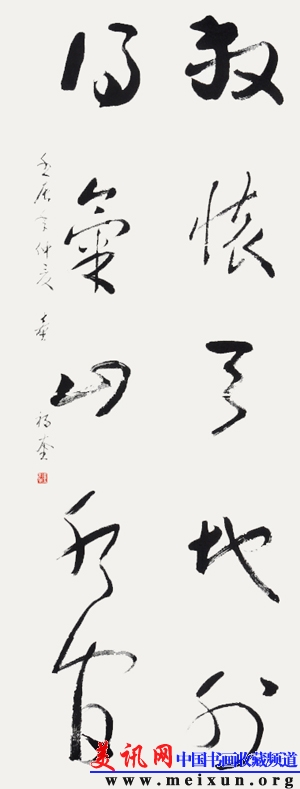 放懷天地外
得氣山水間
仲夏
美讯网 中国书画收藏频道
www.meixun.org